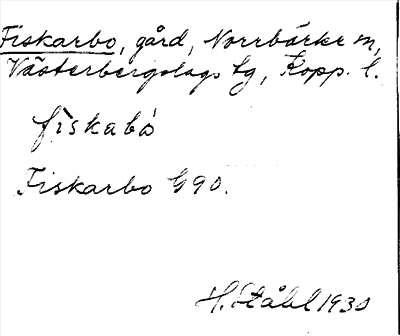 Fiskarbo, gård, Norrbärke sn,
Västerbergslags tg, Kopp. l.
fìskabó
Fiskarbo G90.
H. Ståhl 1930